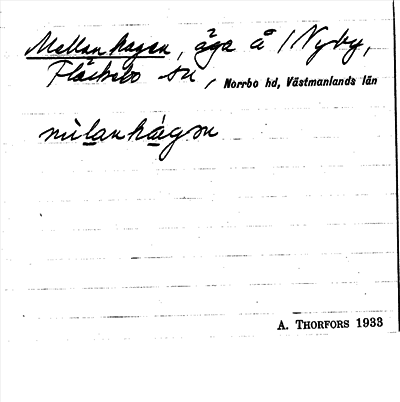 Mellanhagen, äga å Nyby,
Fläckebo sn, Norrbo hd, Västmanlands län
mìlanhágȷn
A. THORFORS 1933